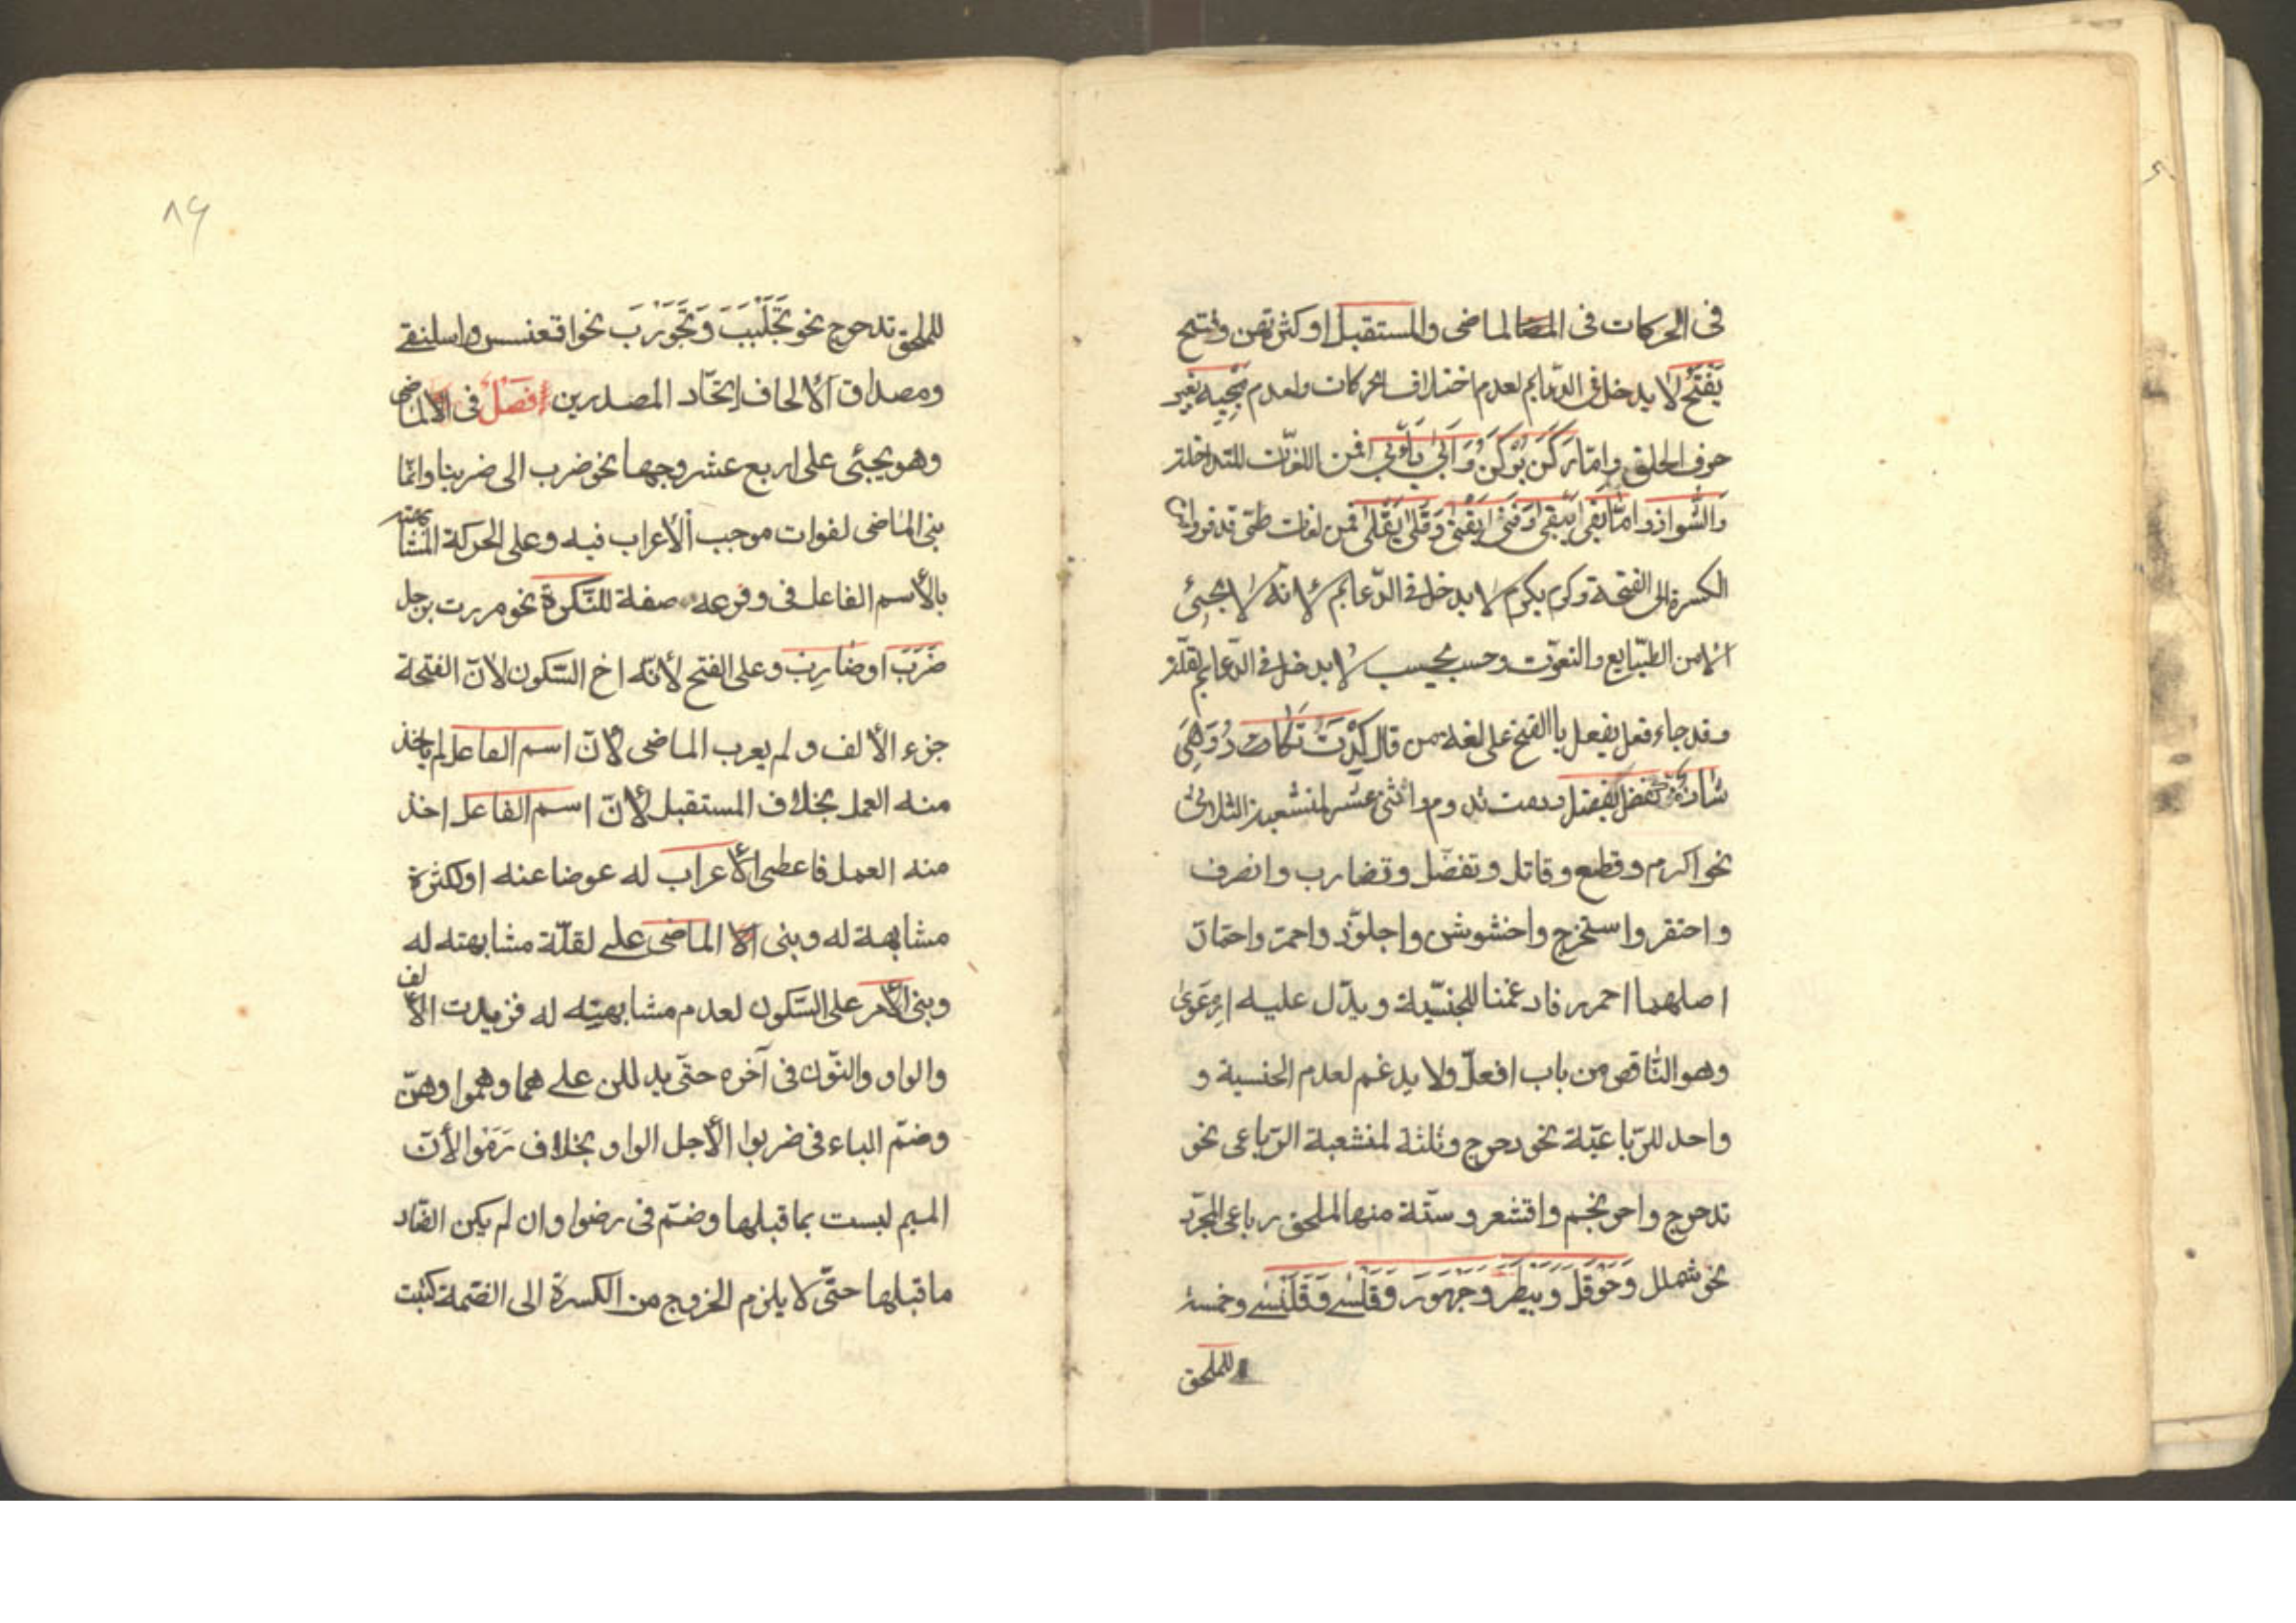 فى الحركات فى الماضى والمستقبل او كثرتهن وفتح
يَفْتَحُ لا يدخل فى الدّعايم لعدم اختلاف الحركات ولعدم مجيه بغير
حرف الحلق وامّا رَكَنَ يَرْكَنُ وَاَبٰى يَأْبٰى فمن اللغات المتداخلة
وَالشَّواذ وامّا بَقٰى يَبْقٰى وَفَنٰى يَفْنٰى وَقَلٰى يَقْلٰى فمن لغات طى قد فروا من
الكسرة الى الفتحة وكرم يكرم لا يدخل فى الدّعايم لانّه لا يجئى
الا من الطّبايع والنعوت وحسب يحسب لا يدخل فى الدّعايم لقلّته
وقد جاء فعل يفعل باالفتح على لغة من قال كِدْتُ تَكَاد دُ وَهِىَ
شاذة كفضل يفضل ودمت تدوم واثنى عشر لمنشعبة الثلاثى
نحو اكرم وقطع وقاتل وتفضّل وتضارب وانصرف
واحتقر واستخرج واخشوشن واجلوّذ واحمرّ واحمارّ
اصلهما احمرر فادغمنا للجنسّية ويدّل عليه اِرْعَوىٰ
وهو النّاقص من باب افعلّ ولا يدغم لعدم الجنسية و
واحد للرّباعيّة نحو دحرج وثلثة لمنشعبة الرّباعى نحو
تدحرج واحرنجم واقشعر وستّة منها لملحق رباعى المجرّد
نحو شملل وَحَوْقَلَ وَبَيْطَرَ وَجَهْوَرَ وَقَلْسٰے وَقَلَنْسٰے وخمسة
للملحق
٨٩
للملحق تدحرج نحو تَجَلْبَبَ وَتَجَوْرَبَ نحو اقعنسس واسلنقے
ومصداق الألحاف اِتّحاد المصدرين فَصْلٌ فى الماضى
وهو يجئى على اربع عشر وجها نحو ضرب الى ضربنا وانّما
بنى الماضى لفوات موجب الأعراب فيه وعلى الحركة المشابهته
بالأسم الفاعل فى وقوعه صفة للنّكرة نحو مررت برجل
ضَرَبَ او ضَارِبٍ وعلى الفتح لأنّه اخ السّكون لأنّ الفتحة
جزء الألف ولم يعرب الماضى لأنّ اسم الفاعل لم يأخذ
منه العمل بخلاف المستقبل لأنّ اسم الفاعل اخذ
منه العمل فاعطى الأعراب له عوضا عنه او لكثرة
مشابهة له وبنى الا الماضى علے لقلّة مشابهته له
وبنى الأمر على السّكون لعدم مشابهته له فزيدت الألف
والواو والنّون فى آخره حتّى يدللن علے هما وهموا وهنّ
وضمّ الباء فى ضربوا الأجل الواو بخلاف رَمَوْا لأنّ
الميم ليست بما قبلها وضمّ فى رضوا وان لم يكن الضّاد
ما قبلها حتّى لا يلزم الخروج من الكسرة الى الضّمة كتبت